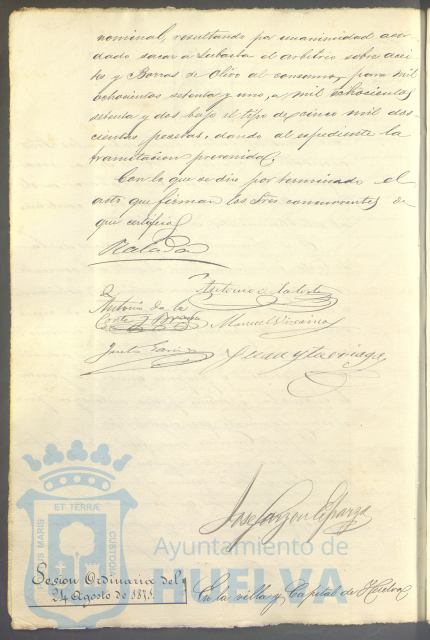 nominal, resultando por unanimidad acor-
dado sacar á subasta el arbitrio sobre acei
tes y Borras de Olivo al consumo, para mil
ochocientos setenta y uno, a mil ochocientos
setenta y dos bajo el tipo de cinco mil dos
cientas pesetas, dando al espediente la
tramitacion prevenida.
Con lo que se dió por terminado el
acto que firman los Sres concurrentes de
que certifico
Antonio de la
Corte y
Manuel Vizcaino
Justo Garcia
Jose Garzon
ET TERRÆ
MARIS
CUSTODIA
Ayuntamiento de
HUELVA
Sesion Ordinaria del
24 Agosto de 1871.
En la villa y Capital de Huelva